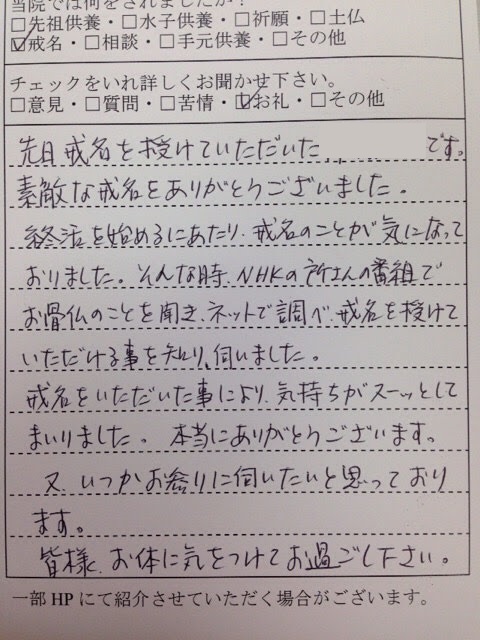 当院では何をされましたか？
□先祖供養・□水子供養・□祈願・□土仏
☑戒名・□相談・□手元供養・□その他
チェックをいれ詳しくお聞かせ下さい。
□意見・□質問・□苦情・☑お礼・□その他
先日戒名を授けていただいた、 です。
素敵な戒名をありがとうございました。
終活を始めるにあたり、戒名のことが気になって
おりました。そんな時、NHKの所さんの番組で
お骨仏のことを聞き、ネットで調べ、戒名を授けて
いただける事を知り、伺いました。
戒名をいただいた事により、気持ちがスーッとして
まいりました。本当にありがとうございます。
又、いつかお参りに伺いたいと思っており
ます。
皆様、お体に気をつけてお過ごし下さい。
一部HPにて紹介させていただく場合がございます。